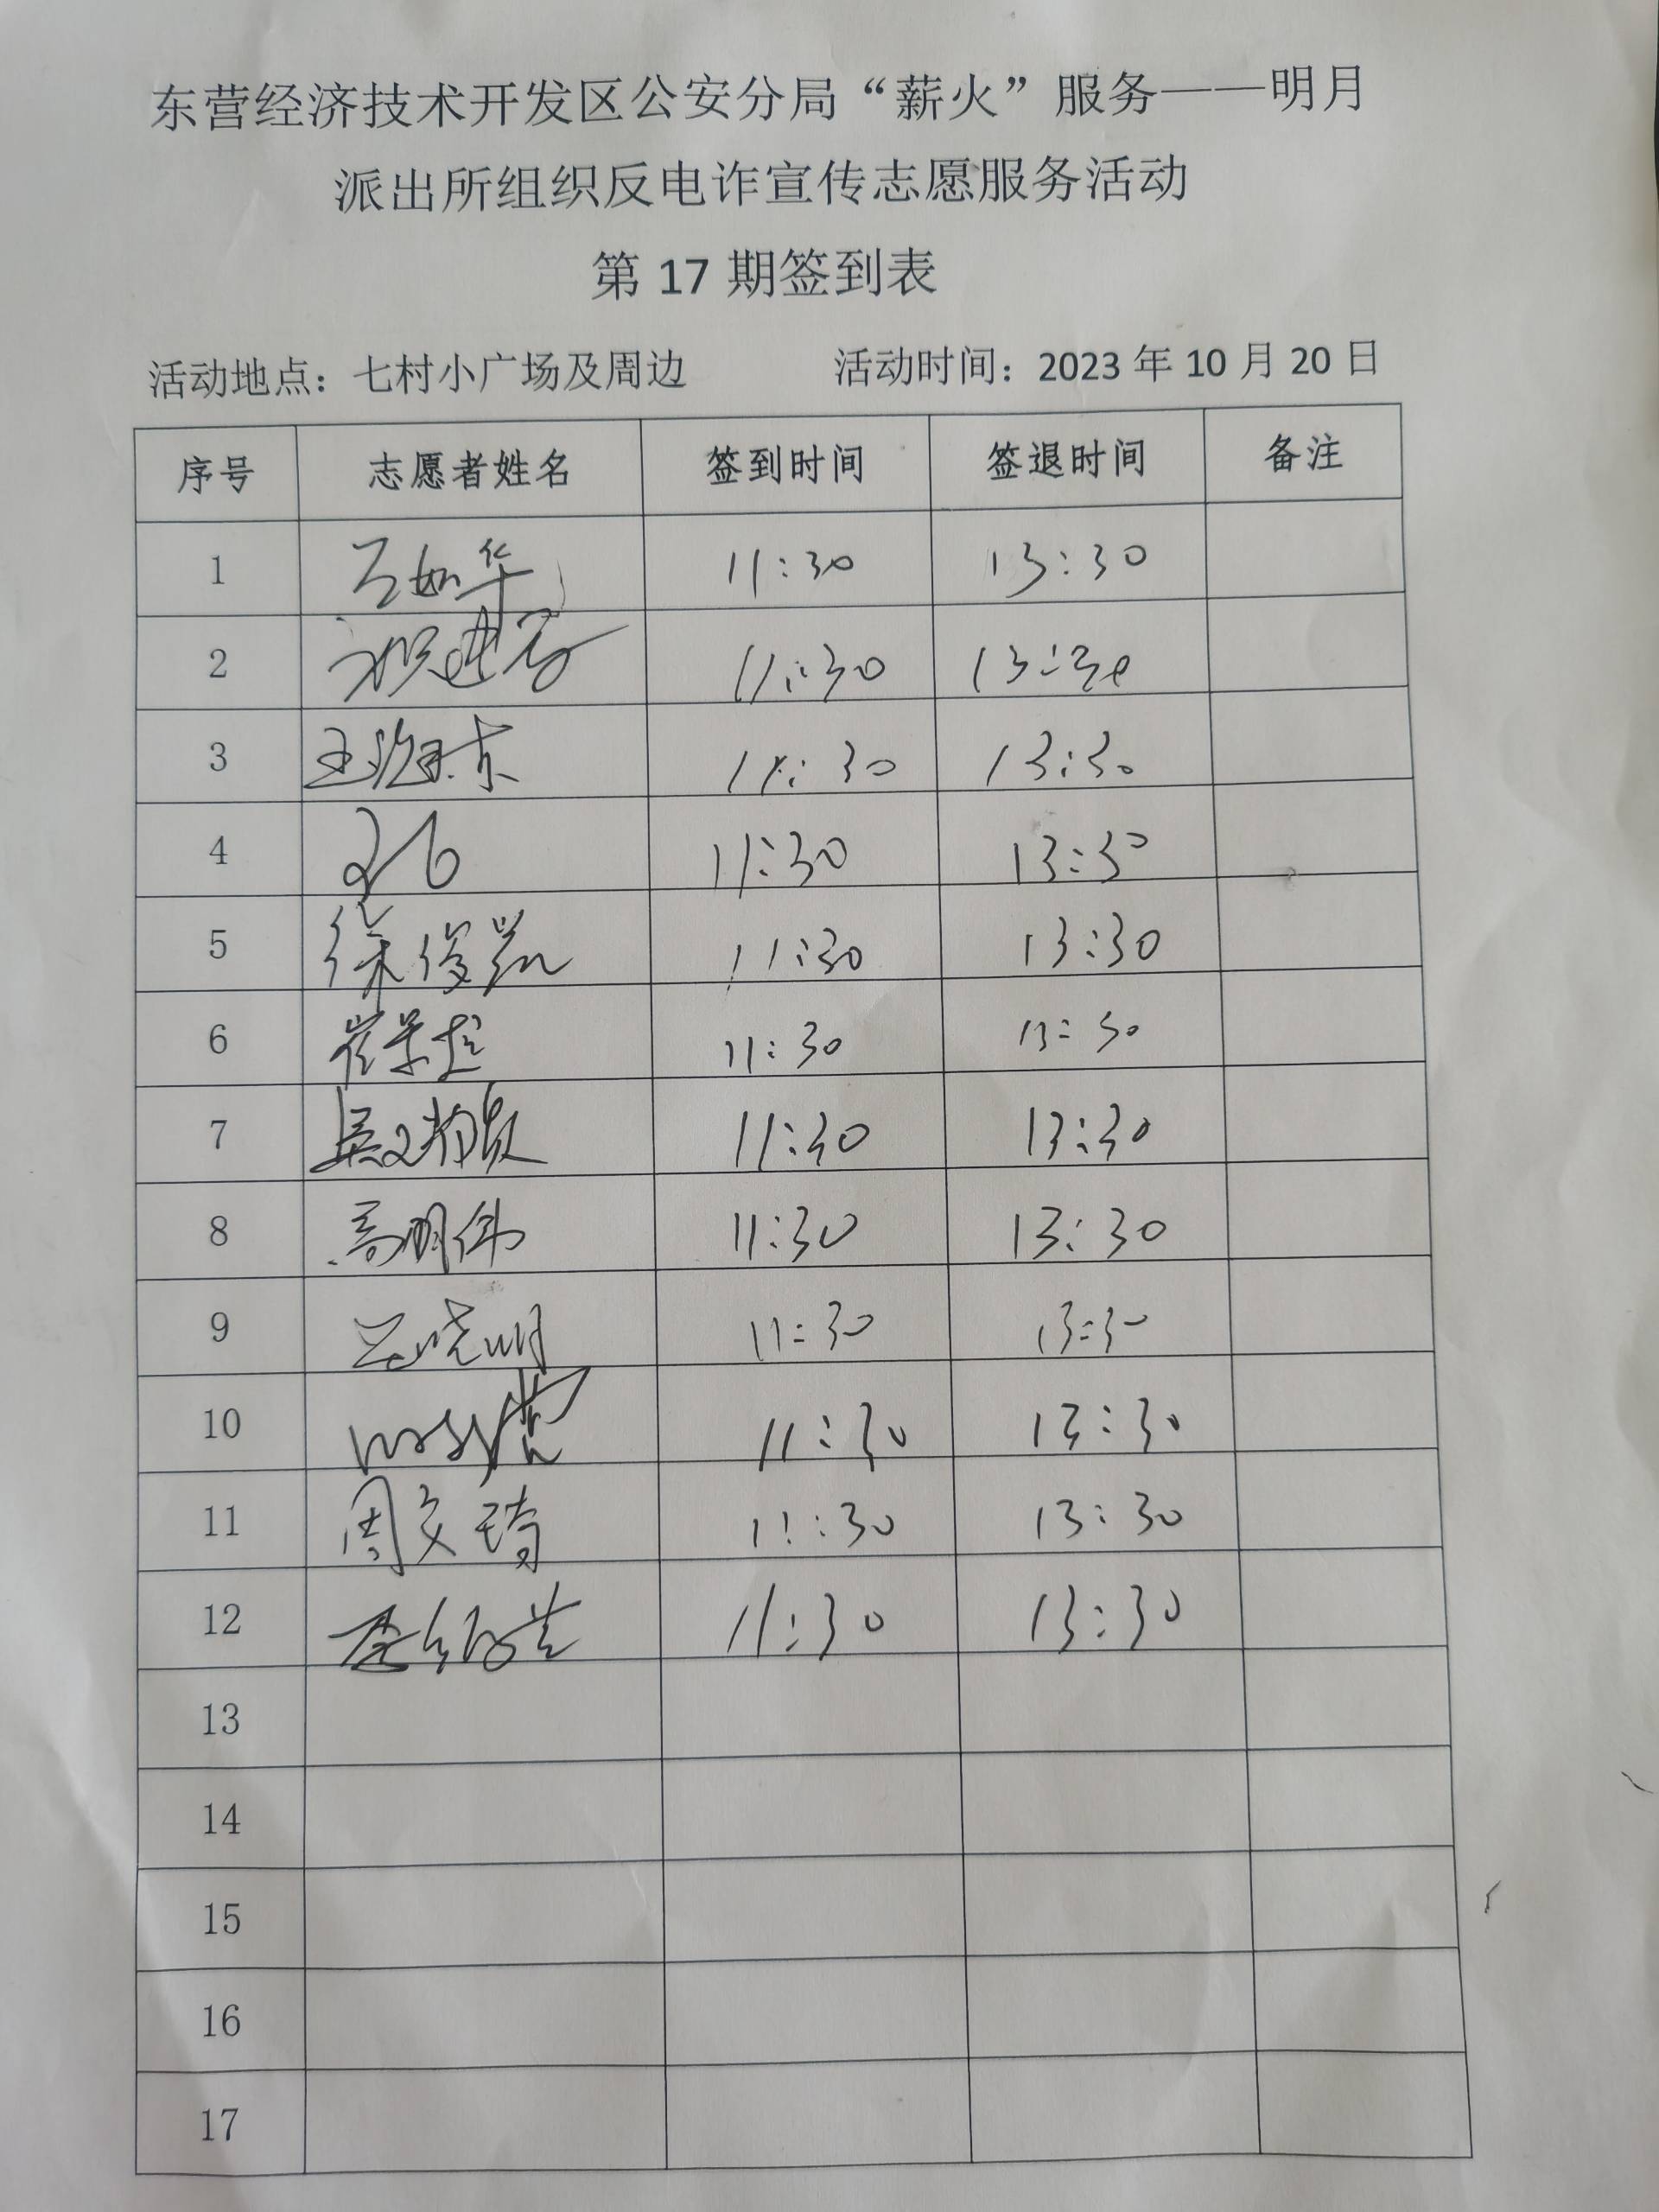 东营经济技术开发区公安分局“薪火”服务——明月
派出所组织反电诈宣传志愿服务活动
第 17 期签到表
活动地点：七村小广场及周边 活动时间：2023 年 10 月 20 日
序号 志愿者姓名 签到时间 签退时间 备注
1 11:30 13:30
2 11:30 13:30
3 11:30 13:30
4 11:30 13:30
5 徐俊凯 11:30 13:30
6 崔景超 11:30 13:30
7 11:30 13:30
8 高明伟 11:30 13:30
9 吕晓明 11:30 13:30
10 11:30 13:30
11 周文琦 11:30 13:30
12 11:30 13:30
13
14
15
16
17